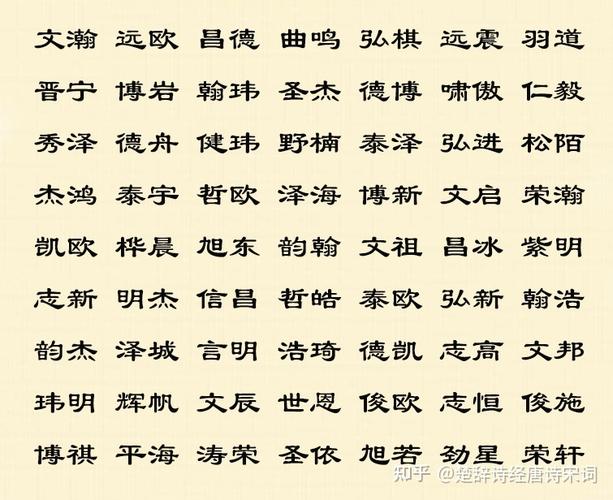 文瀚 远欧 昌德 曲鸣 弘棋 远震 羽道
晋宁 博岩 翰玮 圣杰 德博 啸傲 仁毅
秀泽 德舟 健玮 野楠 泰泽 弘进 松陌
杰鸿 泰宇 哲欧 泽海 博新 文启 荣瀚
凯欧 桦晨 旭东 韵翰 文祖 昌冰 紫明
志新 明杰 信昌 哲皓 泰欧 弘新 翰浩
韵杰 泽城 言明 浩琦 德凯 志高 文邦
玮明 辉帆 文辰 世恩 俊欧 志恒 俊施
博祺 平海 涛荣 圣依 旭若 劲星 荣轩
知乎 @楚辞诗经唐诗宋词